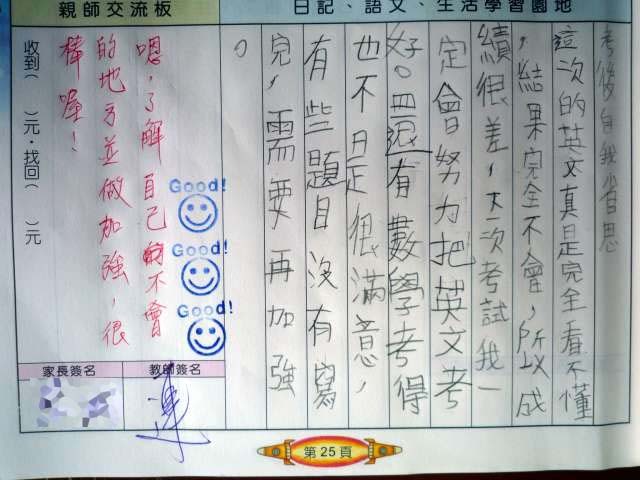 日記、語文、生活學習園地
考後自我省思
這次的英文真是完全看不懂
，結果完全不會，所以成
績很差，下次考試我一
定會努力把英文考
好。還有數學考得
也不是很滿意，
有些題目沒有寫
完，需要再加強
。
親師交流板
嗯，了解自己的不會
的地方並做加強，很
棒喔！
Good!
Good!
Good!
收到（　）元，找回（　）元
教師簽名
家長簽名
第25頁